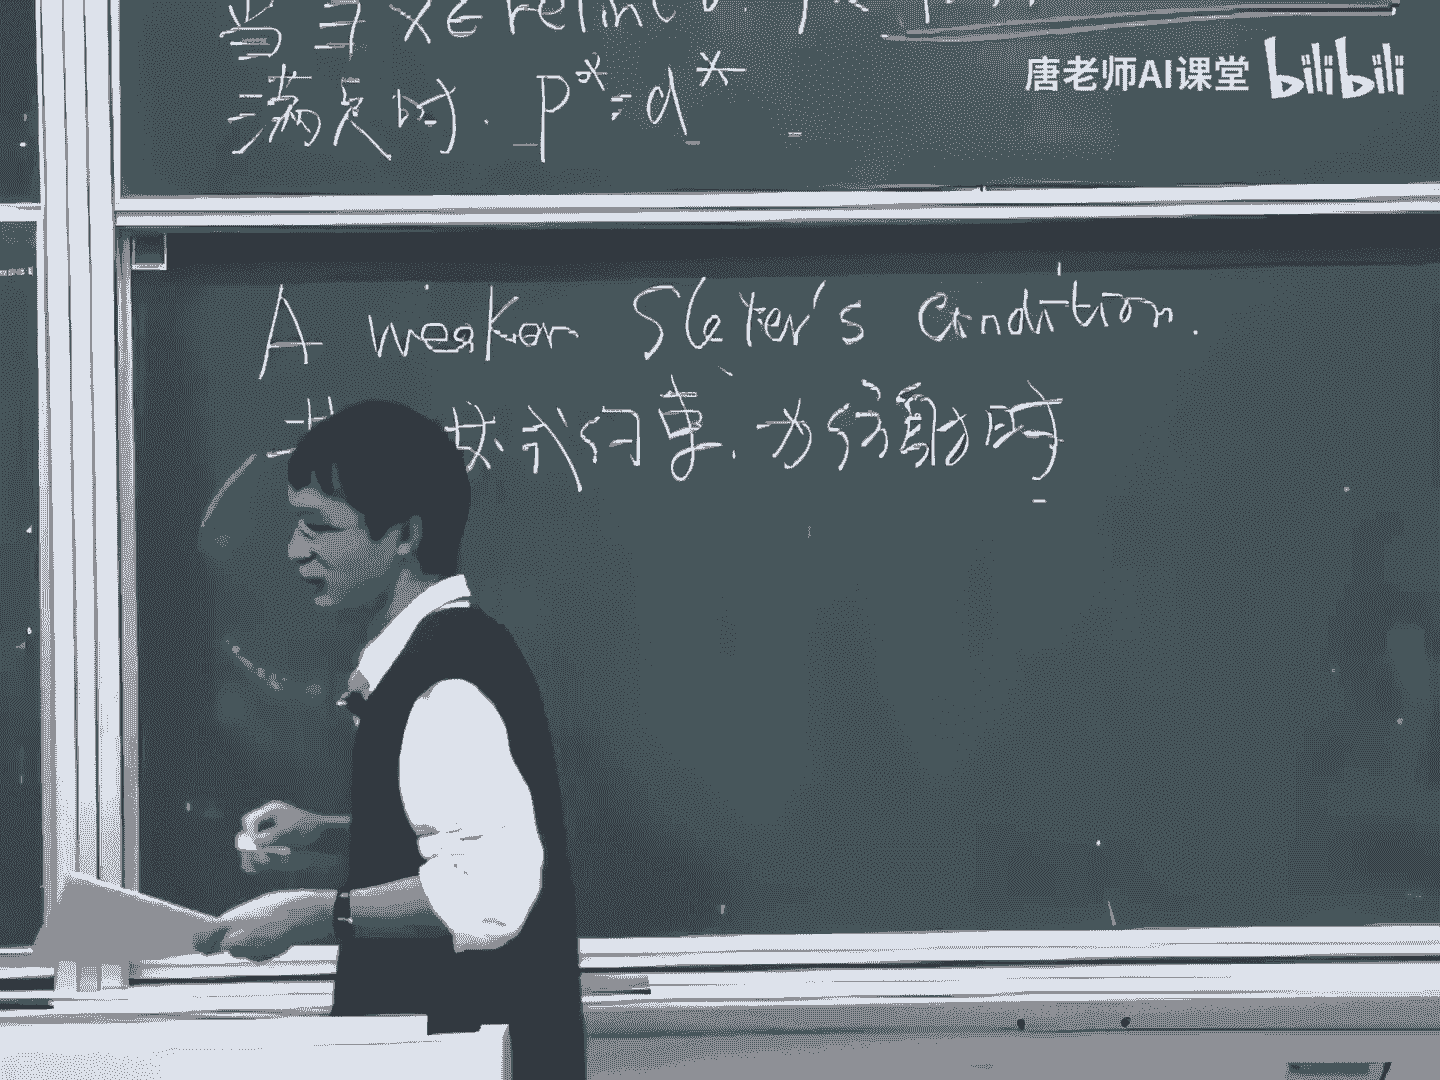 当 ∃ x ∈ relint
满足时. p* = d*
唐老师AI课堂 bilibili
A weaker Slater's Condition.
式约束.为仿射时